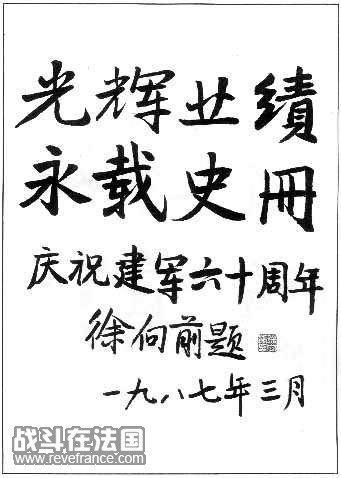 光辉业績
永载史冊
庆祝建军六十周年
徐向前题
一九八七年三月
战斗在法国
www.revefrance.com